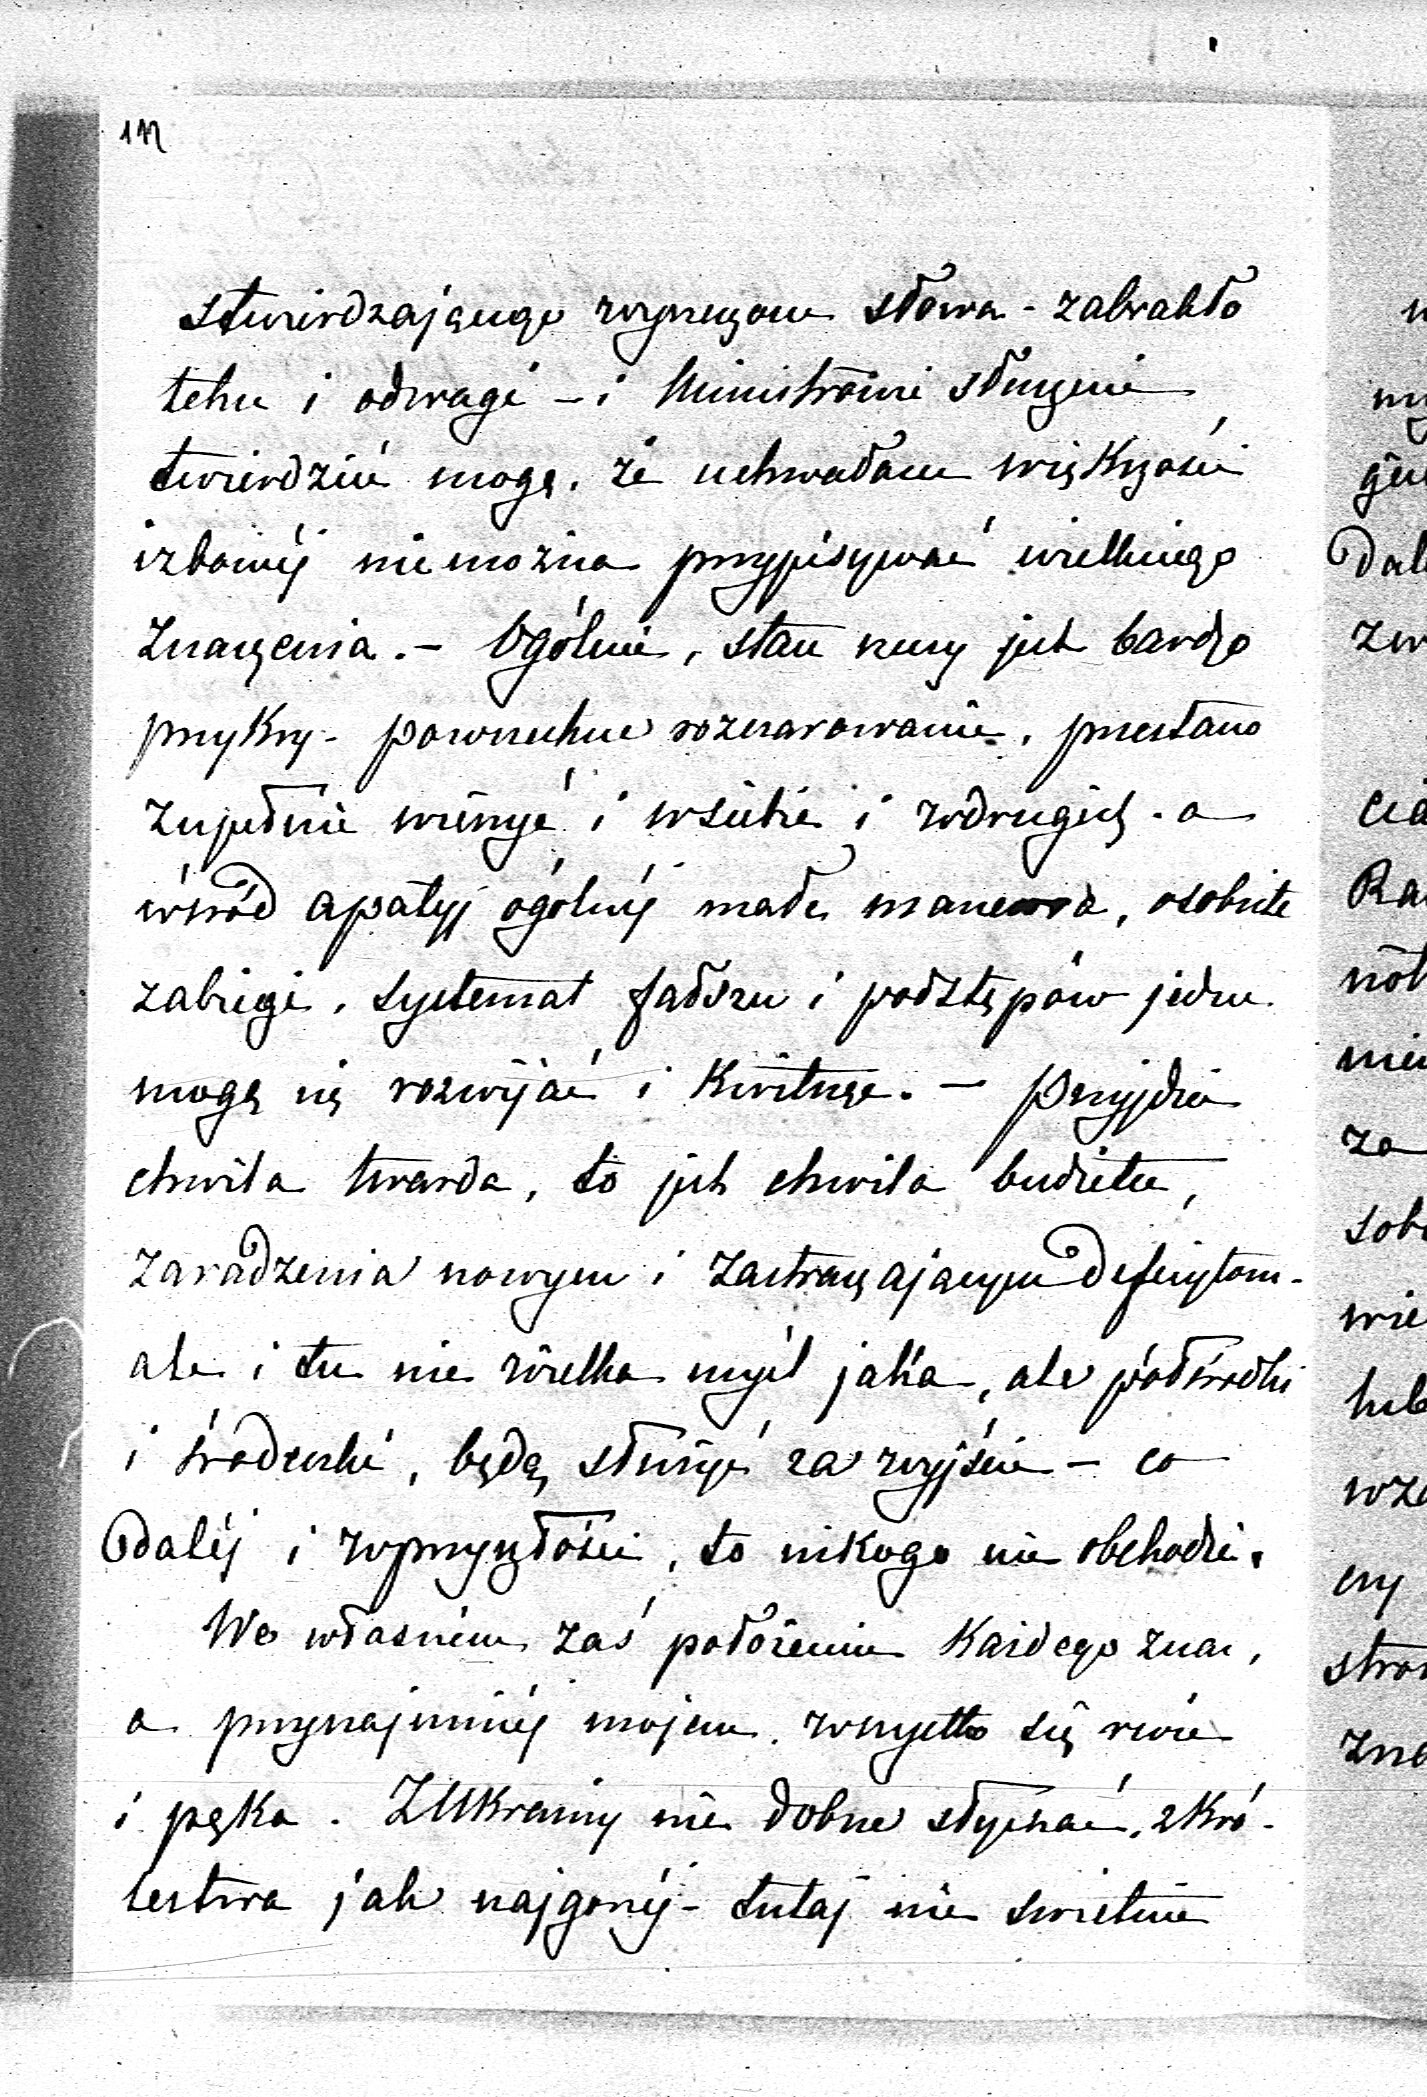 stwierdzającego rzeczone słowa - zabrakło
tchu i odwagi - i Ministrowie słusznie
twierdzić mogą, że uchwałom większości
izbowéj nie można przypisywać wielkiego
znaczenia. - Ogólnie, stan rzeczy jest bardzo
przykry - powszechne rozczarowanie, przestano
zupełnie wierzyć i w siebie i w drugich - a
wśród apatyj ogólnéj małe manewra, osobiste
zabiegi, systemat fałszu i podstępów jedne
mogą się rozwijać i kwitnąć. - Przyjdzie
chwila twarda, to jest chwila budżetu,
zaradzenia nowym i zastraszającym deficytom -
ale i tu nie wielka myśl jaka, ale półśrodki
i środeczki, będą służyć za wyjście - co
daléj i w przyszłości, to nikogo nie obchodzi.
We własném zaś położeniu każdego z nas,
a przynajmniéj mojem, wszystko się rwie
i pęka. Z Ukrainy nie dobrze słychać, z Kró-
lestwa jak najgorzéj - tutaj nie świetnie